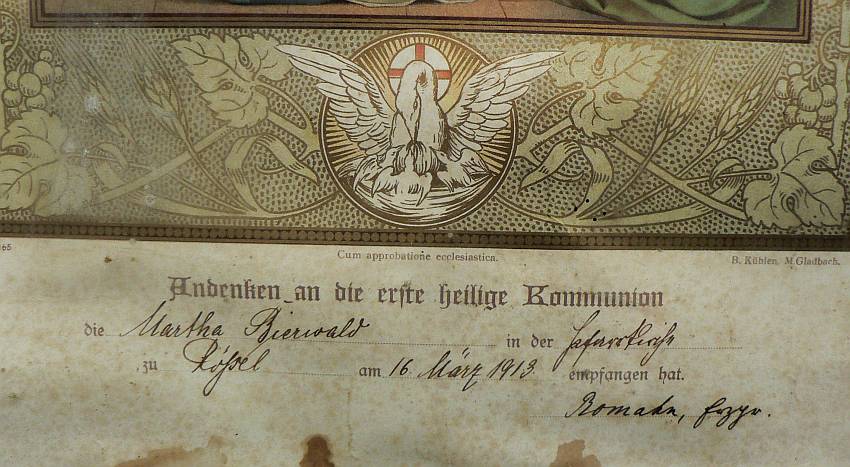 165
Cum approbatione ecclesiastica.
B. Kühlen, M.Gladbach.
Andenken an die erste heilige Kommunion
die Martha Bierwald in der Pfarrkirche
zu Rößel am 16 März 1913. empfangen hat.
Romahn, Erzpr.